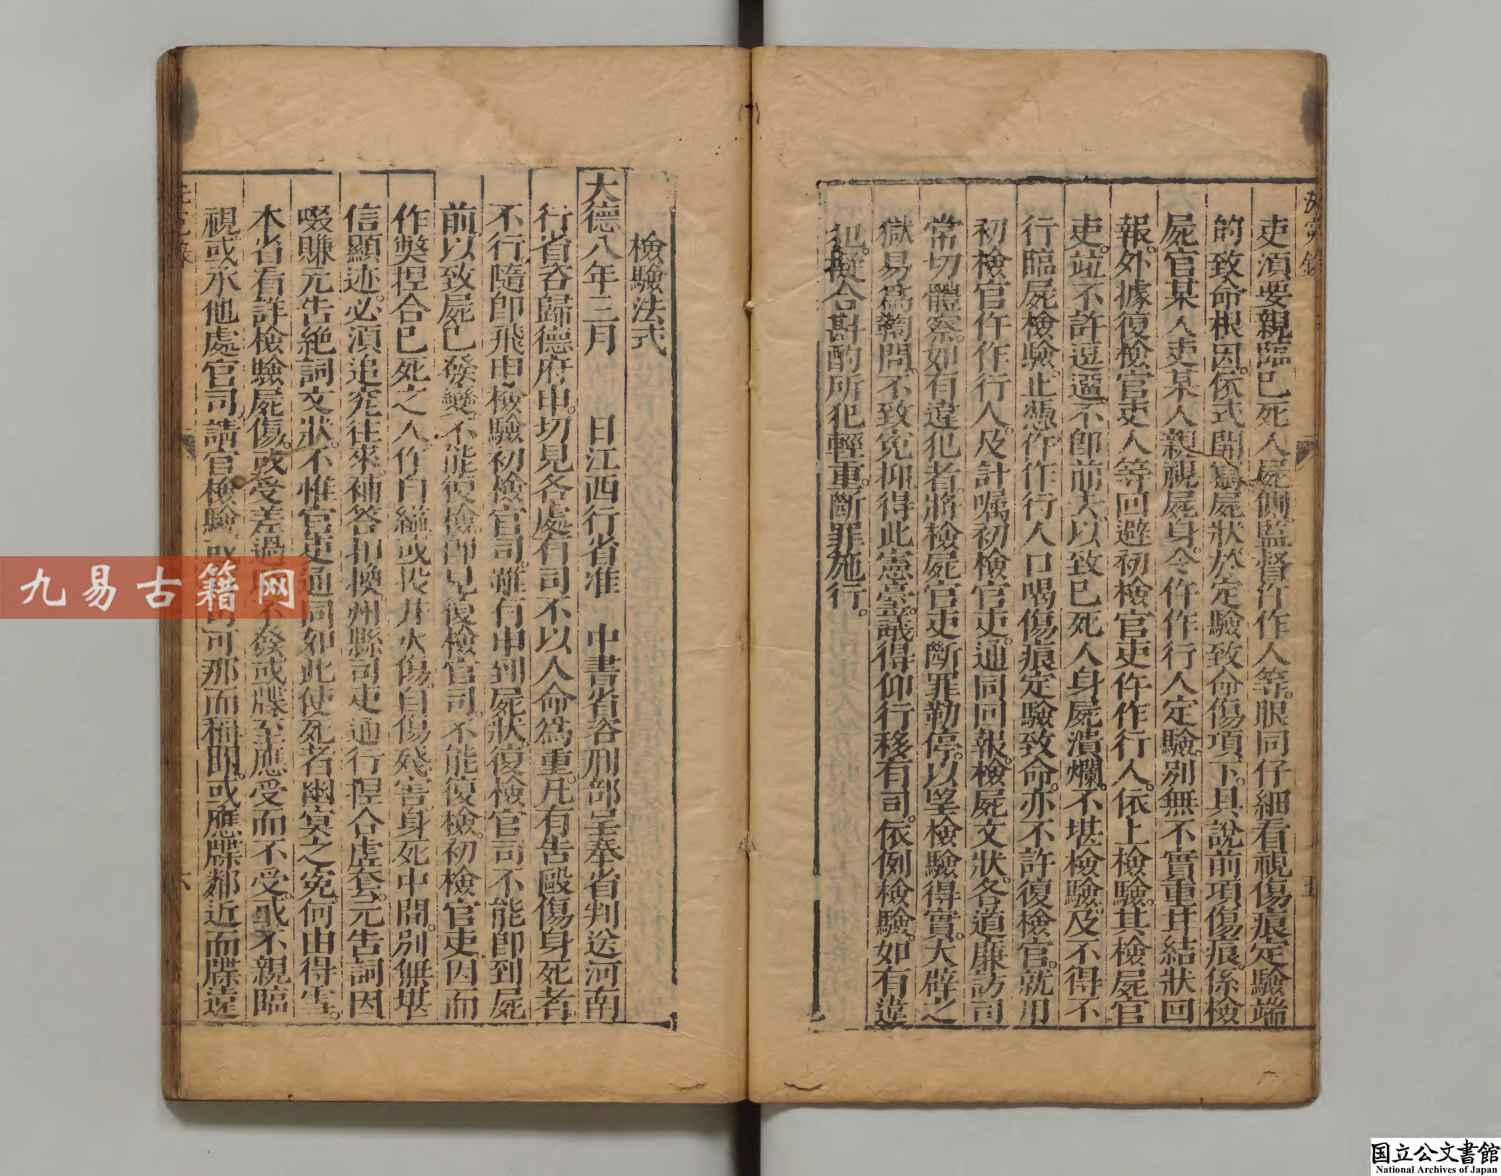 吏湏要親臨已死人屍側監督仵作人等眼同仔細看視傷痕定驗端
的致命根因依式開寫屍狀於定驗致命傷項下具說前項傷痕係檢
屍官某人吏某人親視屍身令仵作行人定驗別無不實重幷結狀回
報外據復檢官吏人等回避初檢官吏仵作行人依上檢驗其檢屍官
吏並不許逗遛不卽前去以致已死人身屍潰爛不堪檢驗及不得不
行臨屍檢驗止憑仵作行人口喝傷痕定驗致命亦不許復檢官就用
初檢官仵作行人及計囑初檢官吏通同回報檢屍文狀各道廉訪司
常切體察如有違犯者將檢屍官吏斷罪勒停以望檢驗得實大辟之
獄易爲鞫問不致冤抑得此憲臺議得仰行移有司依例檢驗如有違
犯擬合斟酌所犯輕重斷罪施行
檢驗法式
大德八年三月 日江西行省准 中書省咨刑部呈奉省判送河南
行省咨歸德府申切見各處有司不以人命爲重凡有告毆傷身死者
不行隨卽飛申檢驗初檢官司雖有申到屍狀復檢官司不能卽到屍
前以致屍已發變不能復檢卽見復檢官司不能復檢初檢官吏因而
作弊捏合已死之人作自縊或投井火傷自傷殘害身死中間別無堪
信顯迹必湏追究往來補答扣換州縣司吏通行捏合虛套元告詞因
啜賺元告絶詞文狀不惟官吏通同如此使死者幽冥之冤何由得雪
本省看詳檢驗屍傷或受差過 不發或牒至應受而不受或不親臨
視或承他處官司請官檢驗 可那而稱 或應牒鄰近而牒遠
五
六
九易古籍网
国立公文書館
National Archives of Japan